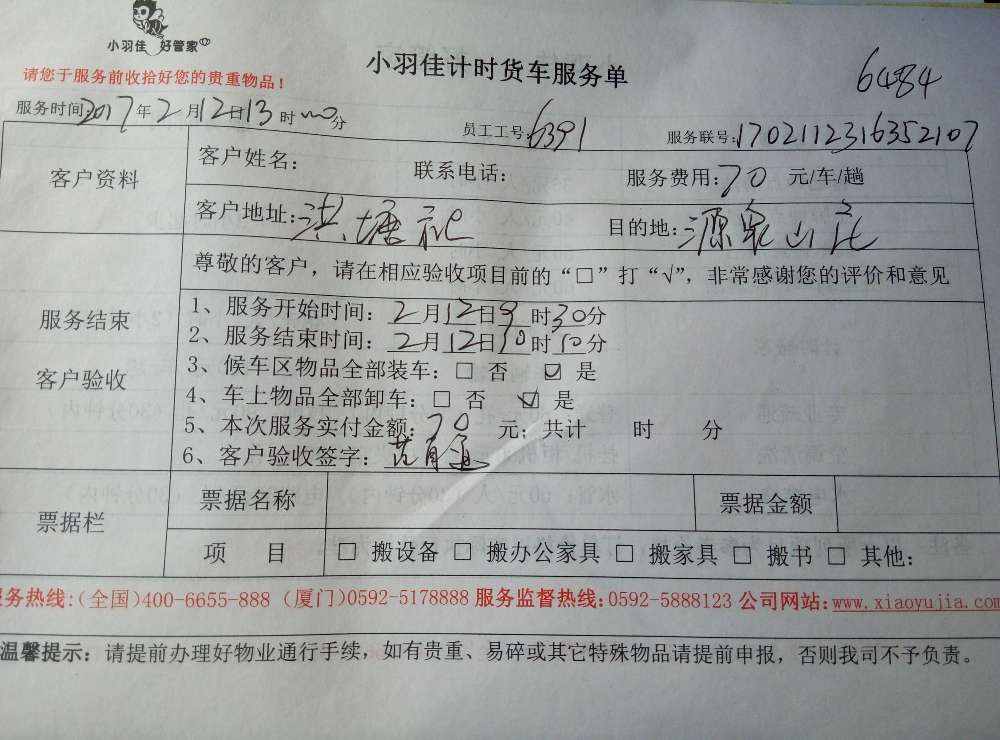 小羽佳 好管家
小羽佳计时货车服务单
6484
请您于服务前收拾好您的贵重物品!
服务时间:2017年2月12日13时 分
员工工号:6391
服务联号:1702112316352107
客户资料
客户姓名:
联系电话:
服务费用:70 元/车/趟
客户地址:洪塘
目的地:源泉山庄
服务结束
客户验收
尊敬的客户，请在相应验收项目前的“□”打“√”，非常感谢您的评价和意见
1、服务开始时间：2月12日9时30分
2、服务结束时间：2月12日10时10分
3、候车区物品全部装车：□ 否 ☑ 是
4、车上物品全部卸车：□ 否 ☑ 是
5、本次服务实付金额:70 元；共计 时 分
6、客户验收签字：
票据栏
票据名称
票据金额
项 目
□ 搬设备 □ 搬办公家具 □ 搬家具 □ 搬书 □ 其他:
务热线:(全国)400-6655-888 (厦门)0592-5178888 服务监督热线:0592-5888123 公司网站:www.xiaoyujia.com
温馨提示：请提前办理好物业通行手续，如有贵重、易碎或其它特殊物品请提前申报，否则我司不予负责。